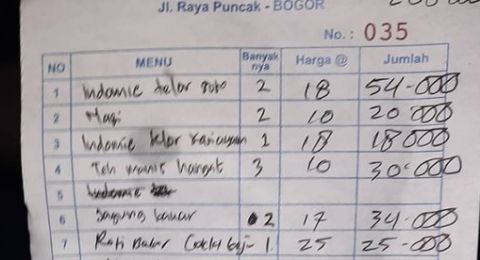 Jl. Raya Puncak - BOGOR
No. : 035
NO MENU Banyak nya Harga @ Jumlah
1 Indomie telor soto 2 18 54-000
2 Nasi 2 10 20 000
3 Indomie telor 1 18 18000
4 Teh manis hangat 3 10 30-000
5 Indomie
6 Jagung bakar 2 17 34-000
7 Roti Bakar Coklat keju 1 25 25-000